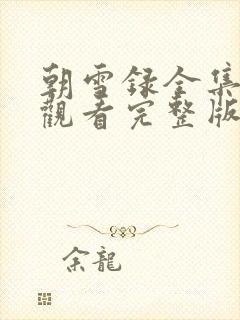 朝雪録全集
觀看完整版
余龍